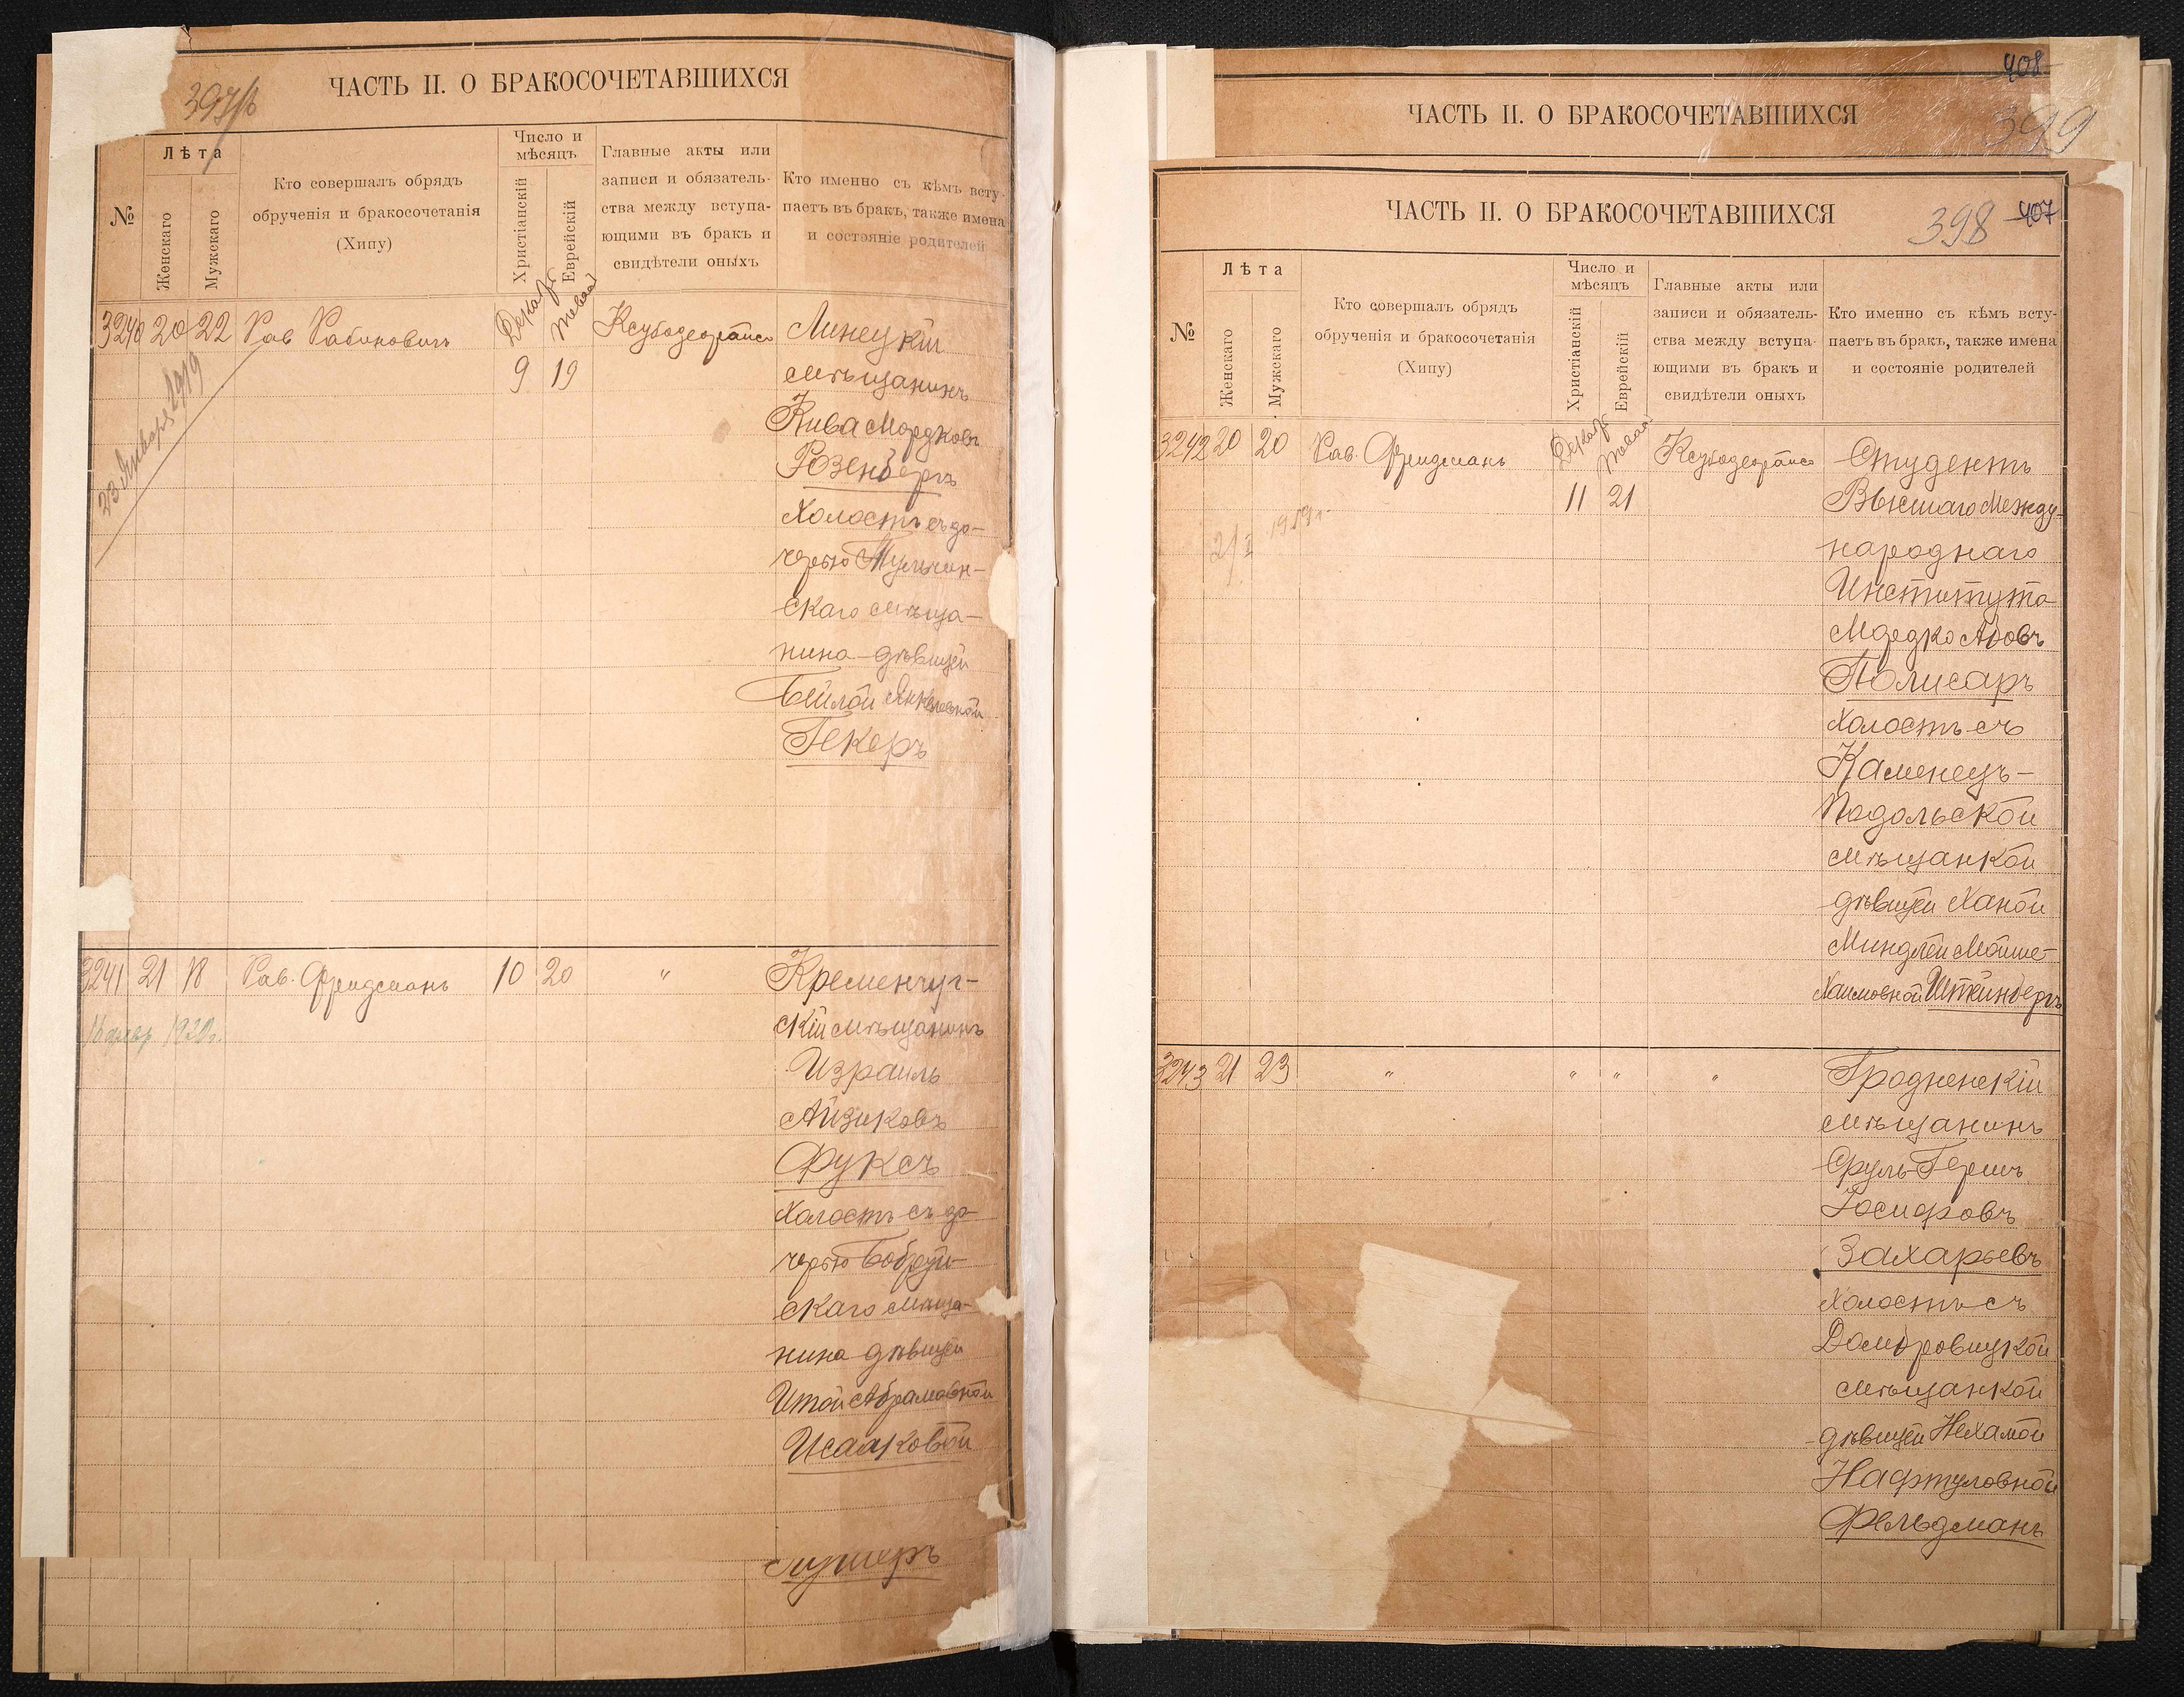 ЧАСТЬ II. О БРАКОСОЧЕТАВШИХСЯ
№
Лѣта
Женскаго
Мужскаго
Кто совершалъ обрядъ
обрученія и бракосочетанія
(Хипу)
Число и
мѣсяцъ
Христіанскій
Еврейскій
Главные акты или
записи и обязатель-
ства между вступа-
ющими въ бракъ и
свидѣтели оныхъ
Кто именно съ кѣмъ всту-
паетъ въ бракъ, также имена
и состояніе родителей
3240 20 22 Рав Рабиновичъ
9 19
23 Января 1919
Линецкій
мѣщанинъ
Кива Мордковъ
Розенбергъ
Холостъ съ до-
черью Тульчин-
скаго мѣща-
нина дѣвицей
Бейлой Янкелевной
Гекеръ
3241 21 18 Рав. Фридманъ 10 20 "
1920г.
Кременчуг-
скій мѣщанинъ
Израиль
Айзиковъ
Фуксъ
Холостъ съ до-
черью Бобруй-
скаго мѣща-
нина дѣвицей
Итой Абрамовной
Исааковой
ЧАСТЬ II. О БРАКОСОЧЕТАВШИХСЯ
408
399
ЧАСТЬ II. О БРАКОСОЧЕТАВШИХСЯ
398 407
№
Лѣта
Женскаго
Мужскаго
Кто совершалъ обрядъ
обрученія и бракосочетанія
(Хипу)
Число и
мѣсяцъ
Христіанскій
Еврейскій
Главные акты или
записи и обязатель-
ства между вступа-
ющими въ бракъ и
свидѣтели оныхъ
Кто именно съ кѣмъ всту-
паетъ въ бракъ, также имена
и состояніе родителей
3242 20 20 Рав. Фридманъ
11 21
1919г.
Студентъ
Высшаго Между-
народнаго
Института
Мордко Ароновъ
Полисаръ
Холостъ съ
Каменецъ-
Подольской
мѣщанкой
дѣвицей Ханой
Миндлей Мойше-
Хаимовной Штейнбергъ
3243 21 23 " " " "
Гродненскій
мѣщанинъ
Сруль-Гершъ
Іосифовъ
Захарьевъ
Холостъ съ
Домбровицкой
мѣщанкой
дѣвицей Нехамой
Нафтуловной
Фельдманъ